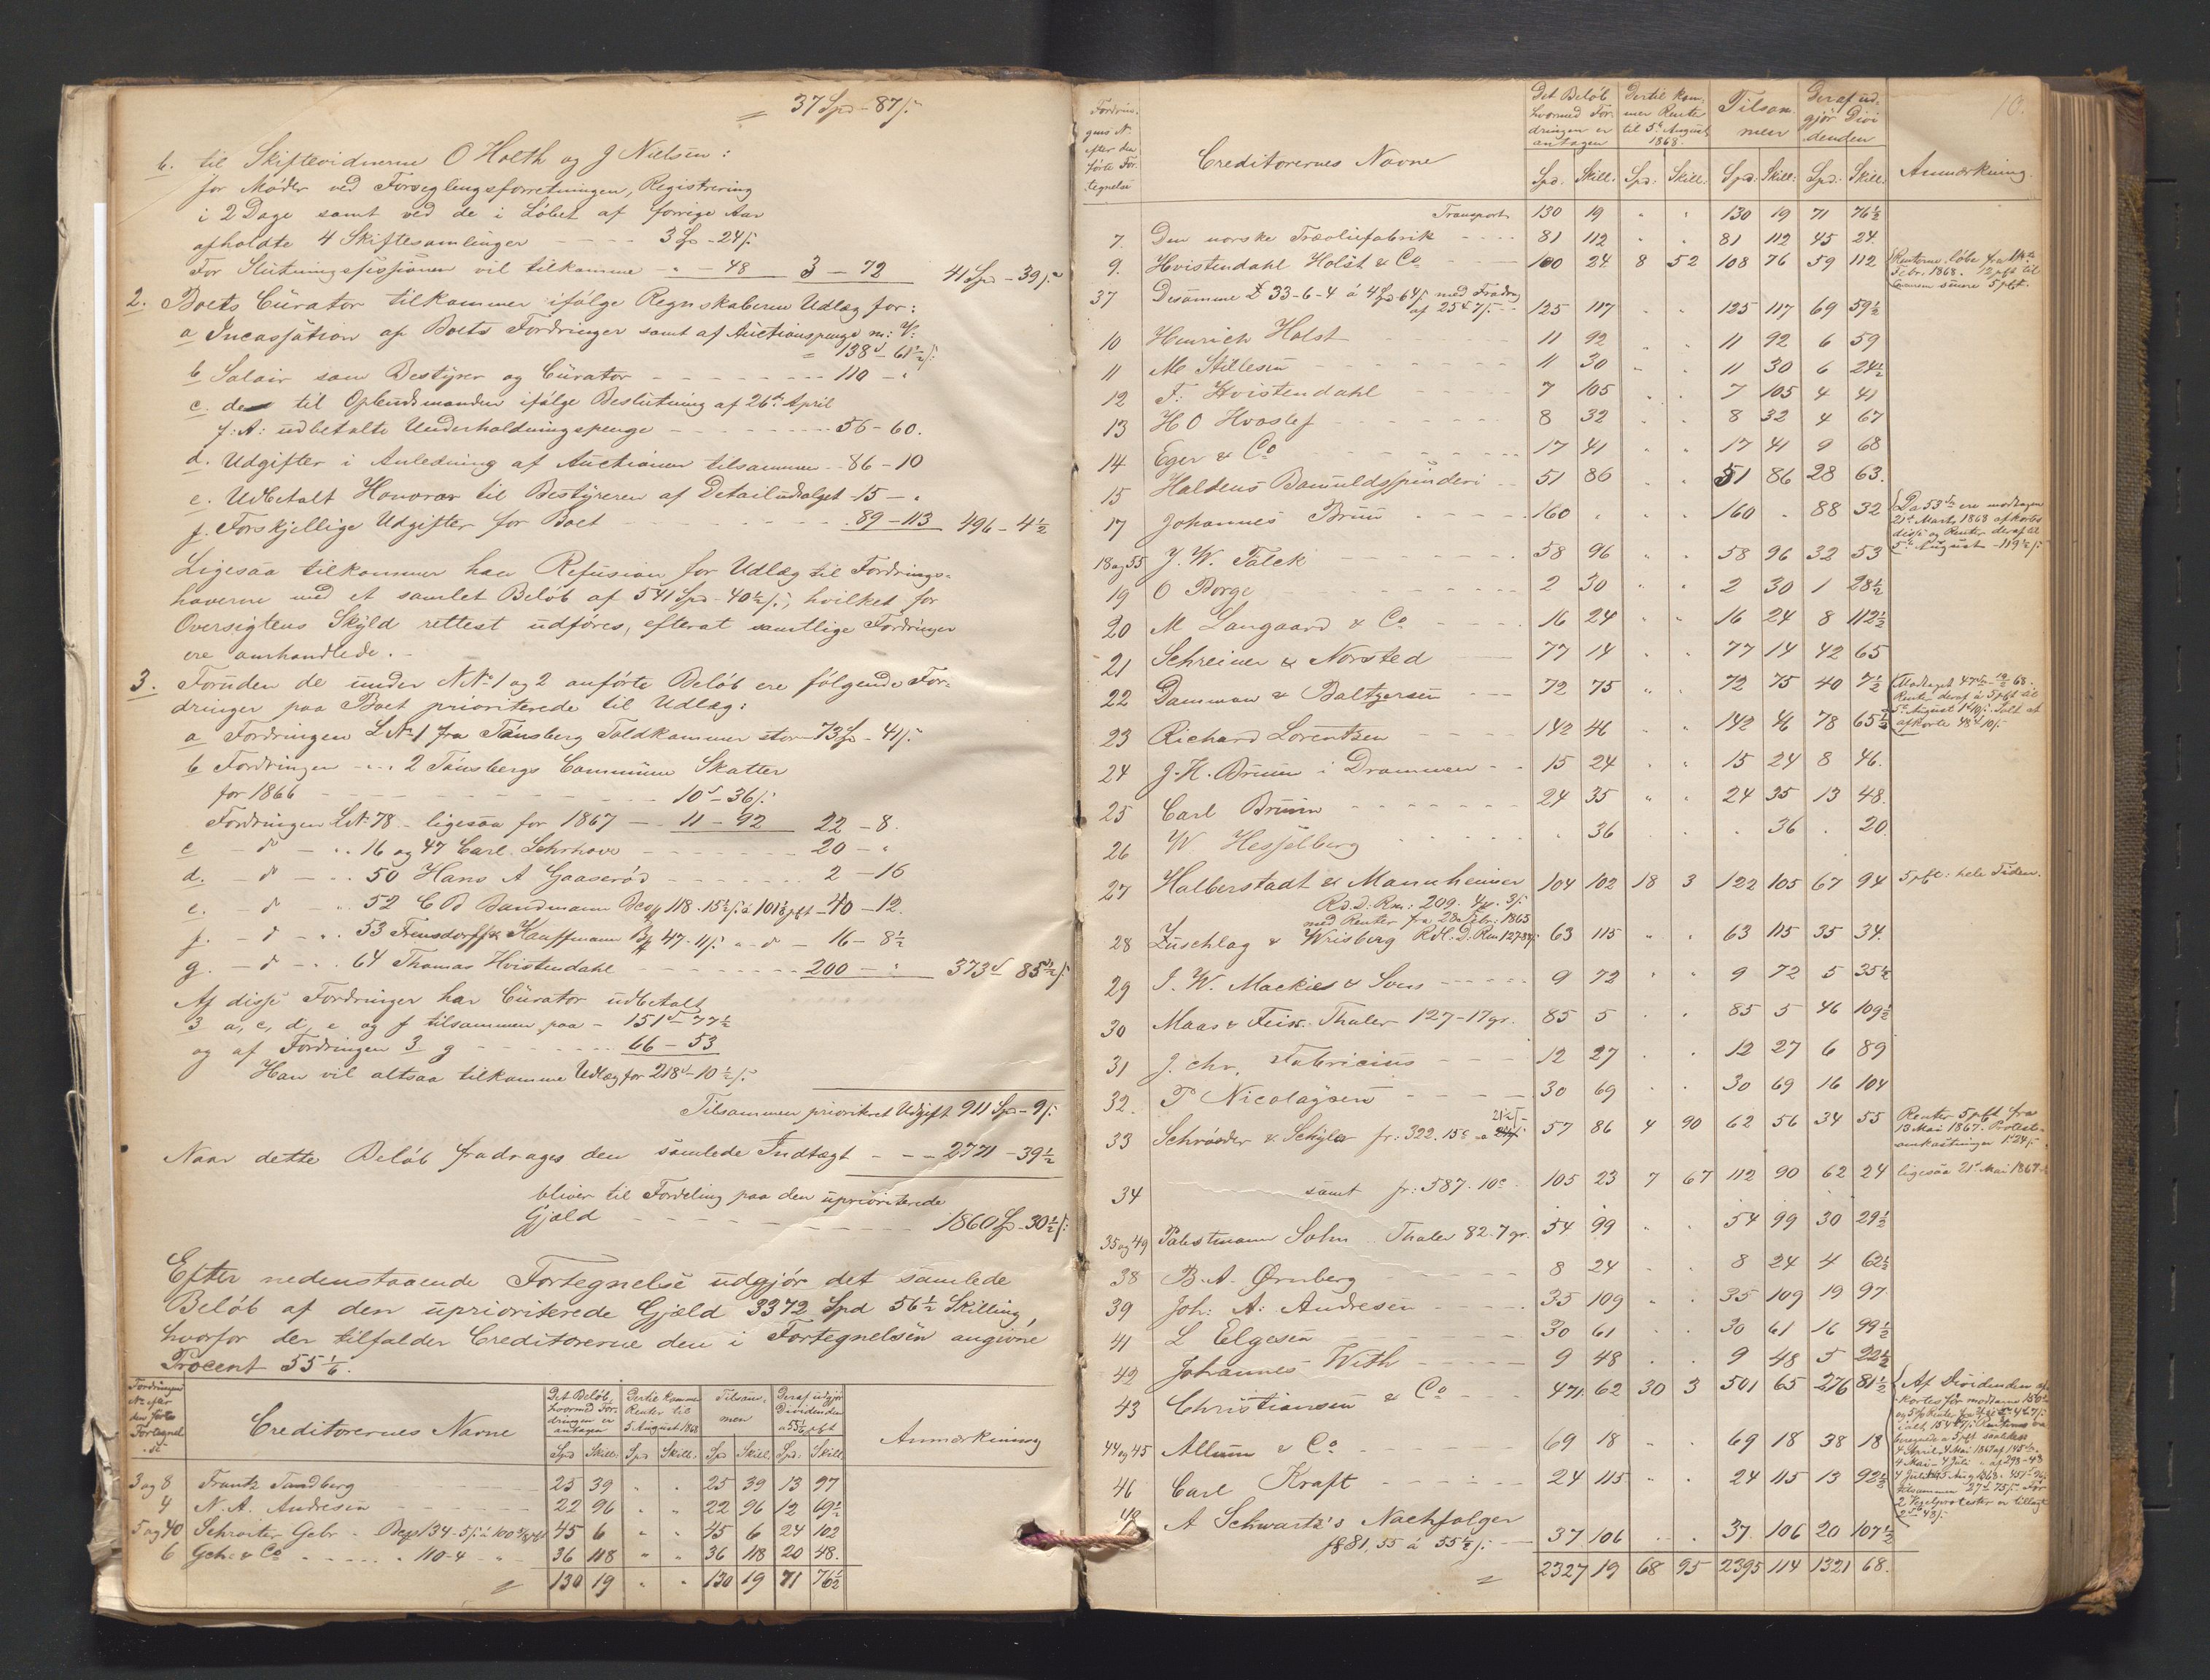 " 37 Spd - 87 /:
b. til Skiftevidnerne O Holth og J Nielsen:
for Møder ved Forseglingsforretningen, Registrering
i 2 Dage samt ved de i Løbet af forrige Aar
afholdte 4 Skiftesamlinger - - - - 3 Sp - 24 /:
For Slutningssessionen vil tilkomme - " - 48 3 - 72 41 Spd - 39 /:
2. Boets Curator tilkommer ifølge Regnskaberne Udlæg for:
a Incassation af Boets Fordringer samt af Auctionspenge m: V:
" 138 d - 61 1/2 /:
b Salair som Bestyrer og Curator - - - - - - - 110 - "
c. de til Opbudsmanden ifølge Beslutning af 26de April
f: A: udbetalte Underholdningspenge - - - - - - - 56 - 60.
d. Udgifter i Anledning af Auctioner tilsammen - - 86 - 10
e. Udbetalt Honorar til Bestyreren af Detailudsalget - 15 - "
f. Forskjellige Udgifter for Boet - - - - - - - 89 - 113 496 - 4 1/2
Ligesaa tilkommer han Refusion for Udlæg til Fordrings-
haverne med et samlet Beløb af 541 Spd - 40 1/2 /:, hvilket for
Oversigtens Skyld rettest udføres, efterat samtlige Fordringer
ere omhandlede. -
3. Foruden de under N No 1 og 2 anførte Beløb ere følgende For-
dringer paa Boet prioriterede til Udlæg:
a Fordringen L No 1 fra Tønsberg Toldkammer stor 73 Sp - 41 /:
b Fordringen - " - 2 Tønsbergs Commune Skatter
for 1866 - - - - - - - - 10 d - 36 /:
Fordringen L No 78 - ligesaa for 1867 - - 11 - 92 22 - 8.
c - d - " - 16 og 47 Carl Sehrhove - - - - - - 20 - "
d. - d - " - 50 Hans A Gaaserød - - - - - - 2 - 16
e. - d - " 52 C B Sandmann Bco 118. 15 1/2 /: á 101 1/2 pft - 40 - 12.
f. - d - " 53 Feinsdorff & Kauffmann B 47. 11 /: - d - 16 - 8 1/2
g. - d - " 64 Thomas Hvistendahl - - - - - - 200 - " 373 d 85 1/2 /:
Af disse Fordringer har Curator udbetalt
3 a, c, d, e og f tilsammen paa - 151 d - 77 1/2
og af Fordringen 3 g - - - - - 66 - 53
Han vil altsaa tilkomme Udlæg for 218 d - 10 1/2 /:
Tilsammen prioritert Udgift 911 Spd - 9 /:
Naar dette Beløb fradrages den samlede Indtægt - - - 2771 - 39 1/2
bliver til Fordeling paa den uprioriterede
Gjæld - - - - - - - - - - 1860 Sp - 30 1/2 /:
Efter nedenstaaende Fortegnelse udgjør det samlede
Beløb af den uprioriterede Gjæld 3372 Spd 56 1/2 Skilling,
hvorfor der tilfalder Creditorerne den i Fortegnelsen angivne
Procent 55 1/6.
Fordringens No efter den førte Fortegnelse
Creditorernes Navne
Det Beløb, hvormed Fordringen er antagen
Dertil komme Renter til 5 August 1868
Tilsammen
Deraf udgjør Dividenden a 55 1/6 pft
Anmærkning
Spd Skill: Spd Skill: Spd Skill: Spd: Skill:
3 og 8 Frantz Tandberg 25 39 " " 25 39 13 97
4 N. A. Andresen - - - - 22 96 " " 22 96 12 69 1/2
5 og 40 Schroiter Gebr - Bco 134 - 5 /: á 100 45 6 " " 45 6 24 102
6 Geh: & Co - - - - " 110 - 4 - " 36 118 " " 36 118 20 48.
" 130 19 " " 130 19 71 76 1/2
10.
Fordringens No efter den førte Fortegnelse
Creditorernes Navne
Det Beløb hvormed Fordringen er antagen
Dertil kommer Renter til 5te August 1868.
Tilsammen
Deraf udgjør Dividenden
Anmærkning.
Spd. Skill. Spd: Skill: Spd: Skill: Spd: Skill:
Transport 130 19 " " 130 19 71 76 1/2
7. Den norske Træoliefabrik - - - - 81 112 " " 81 112 45 24.
9. Hvistendahl Holst & Co - - - 100 24 8 52 108 76 59 112 Renterne løbe fra
Febr. 1868. 12 pft til
senere 5 pft.
37 Desamme £ 33 - 6 - 4 á 4 Sp 64 /: med Fradrag
af 25 d 7 /: - - 125 117 " " 125 117 69 59 1/2
10 Hinrich Holst - - - - - 11 92 " " 11 92 6 59
11 M Stillesen - - - - - - 11 30 " " 11 30 6 24 1/2
12 F: Hvistendahl - - - - - 7 105 " " 7 105 4 41
13 H O Hvoslef - - - - - - 8 32 " " 8 32 4 67
14 Eger & Co - - - - - - - 17 41 " " 17 41 9 68
15 Haldens Bomuldsspinderi - - 51 86 " " 51 86 28 63.
17 Johannes Bruun - - - - - 160 " " " 160 - 88 32 Da 53 Sp ere modtagne
21de Marts 1868 afkortes
disse og Renter deraf til
5te August - 119 1/2 /:
18 og 55 J. W. Falck - - - - - - 58 96 " " 58 96 32 53
19 O Borge - - - - - - - 2 30 " " 2 30 1 28 1/2
20 M Langaard & Co - - - - 16 24 " " 16 24 8 112 1/2
21 Schreiner & Norsted - - - 77 14 " " 77 14 42 65
22 Damman & Baltzersen - - - 72 75 " " 72 75 40 7 1/2 Modtaget 47 Sp - 68.
Renter deraf á 5 pft til
5te August 1 d 10 /: Solt at
afkorte 48 d 10 /:
23 Richard Lorentzen - - - - 142 46 " " 142 46 78 65 1/2
24 J. K. Bruun i Drammen - - 15 24 " " 15 24 8 46.
25 Carl Bruun - - - - - - 24 35 " " 24 35 13 48.
26 W. Hesselberg - - - - - " 36 " " " 36 " 20.
27 Halberstadt & Mannheimer 104 102 18 3 122 105 67 94 5 pft: hele Tiden.
Rd. D: Rm: 209. 4 3 /:
med Renter fra 28 Febr: 1865
28 Zuschlag & Wrisberg Rdl: D: Rm 127 - 88 /: 63 115 " " 63 115 35 34.
29 J. W. Mackies & Sons - - - - 9 72 " " 9 72 5 35 1/2
30 Maas & Feiss. Thaler 127 - 17 gr. 85 5 " " 85 5 46 109 1/2
31 J. Chr. Fabricius - - - 12 27 " " 12 27 6 89
32. P Nicolaysen - - - - 30 69 " " 30 69 16 104
33 Schrøder & Schyler fr: 322. 15 c a 21 1/2 /: 57 86 4 90 62 56 34 55 Renter 5 pft fra
13 Mai 1867. Protest-
omkostninger 1 d 24 /:
34 samt fr: 587. 10 c. 105 23 7 67 112 90 62 24 ligesaa 21de Mai 1867
35 og 49 Palestmann Sohn Thaler 82. 7 gr. 54 99 " " 54 99 30 29 1/2
38 B. A. Ørnberg - - - - 8 24 " " 8 24 4 62 1/2
39 Joh: A: Andresen - - - - 35 109 " " 35 109 19 97
41 L Elgesen - - - - - - 30 61 " " 30 61 16 99 1/2
42 Johannes With - - - - 9 48 " " 9 48 5 22 1/2
43 Christiansen & Co - - - 471 62 30 3 501 65 276 81 1/2 Af Dividenden af-
kortes for modtagne 150
44 og 45 Allum & Co - - - - - 69 18 " " 69 18 38 18
4 April - 4 Mai 1867 af 145
4 Mai - 4 Juli " af 298 - 48
46 Carl Kraft - - - - - 24 115 " " 24 115 13 92 1/2
tilsammen 27 d 75 /: For
2 Vexelprotester er tillagt
2 Sp 48 /:
48 A Schwartz's Nachfolger
f 81, 55 á 55 1/2 /: - - 37 106 " " 37. 106 20 107 1/2
" 2327 19 68 95 2395 114 1321 68.